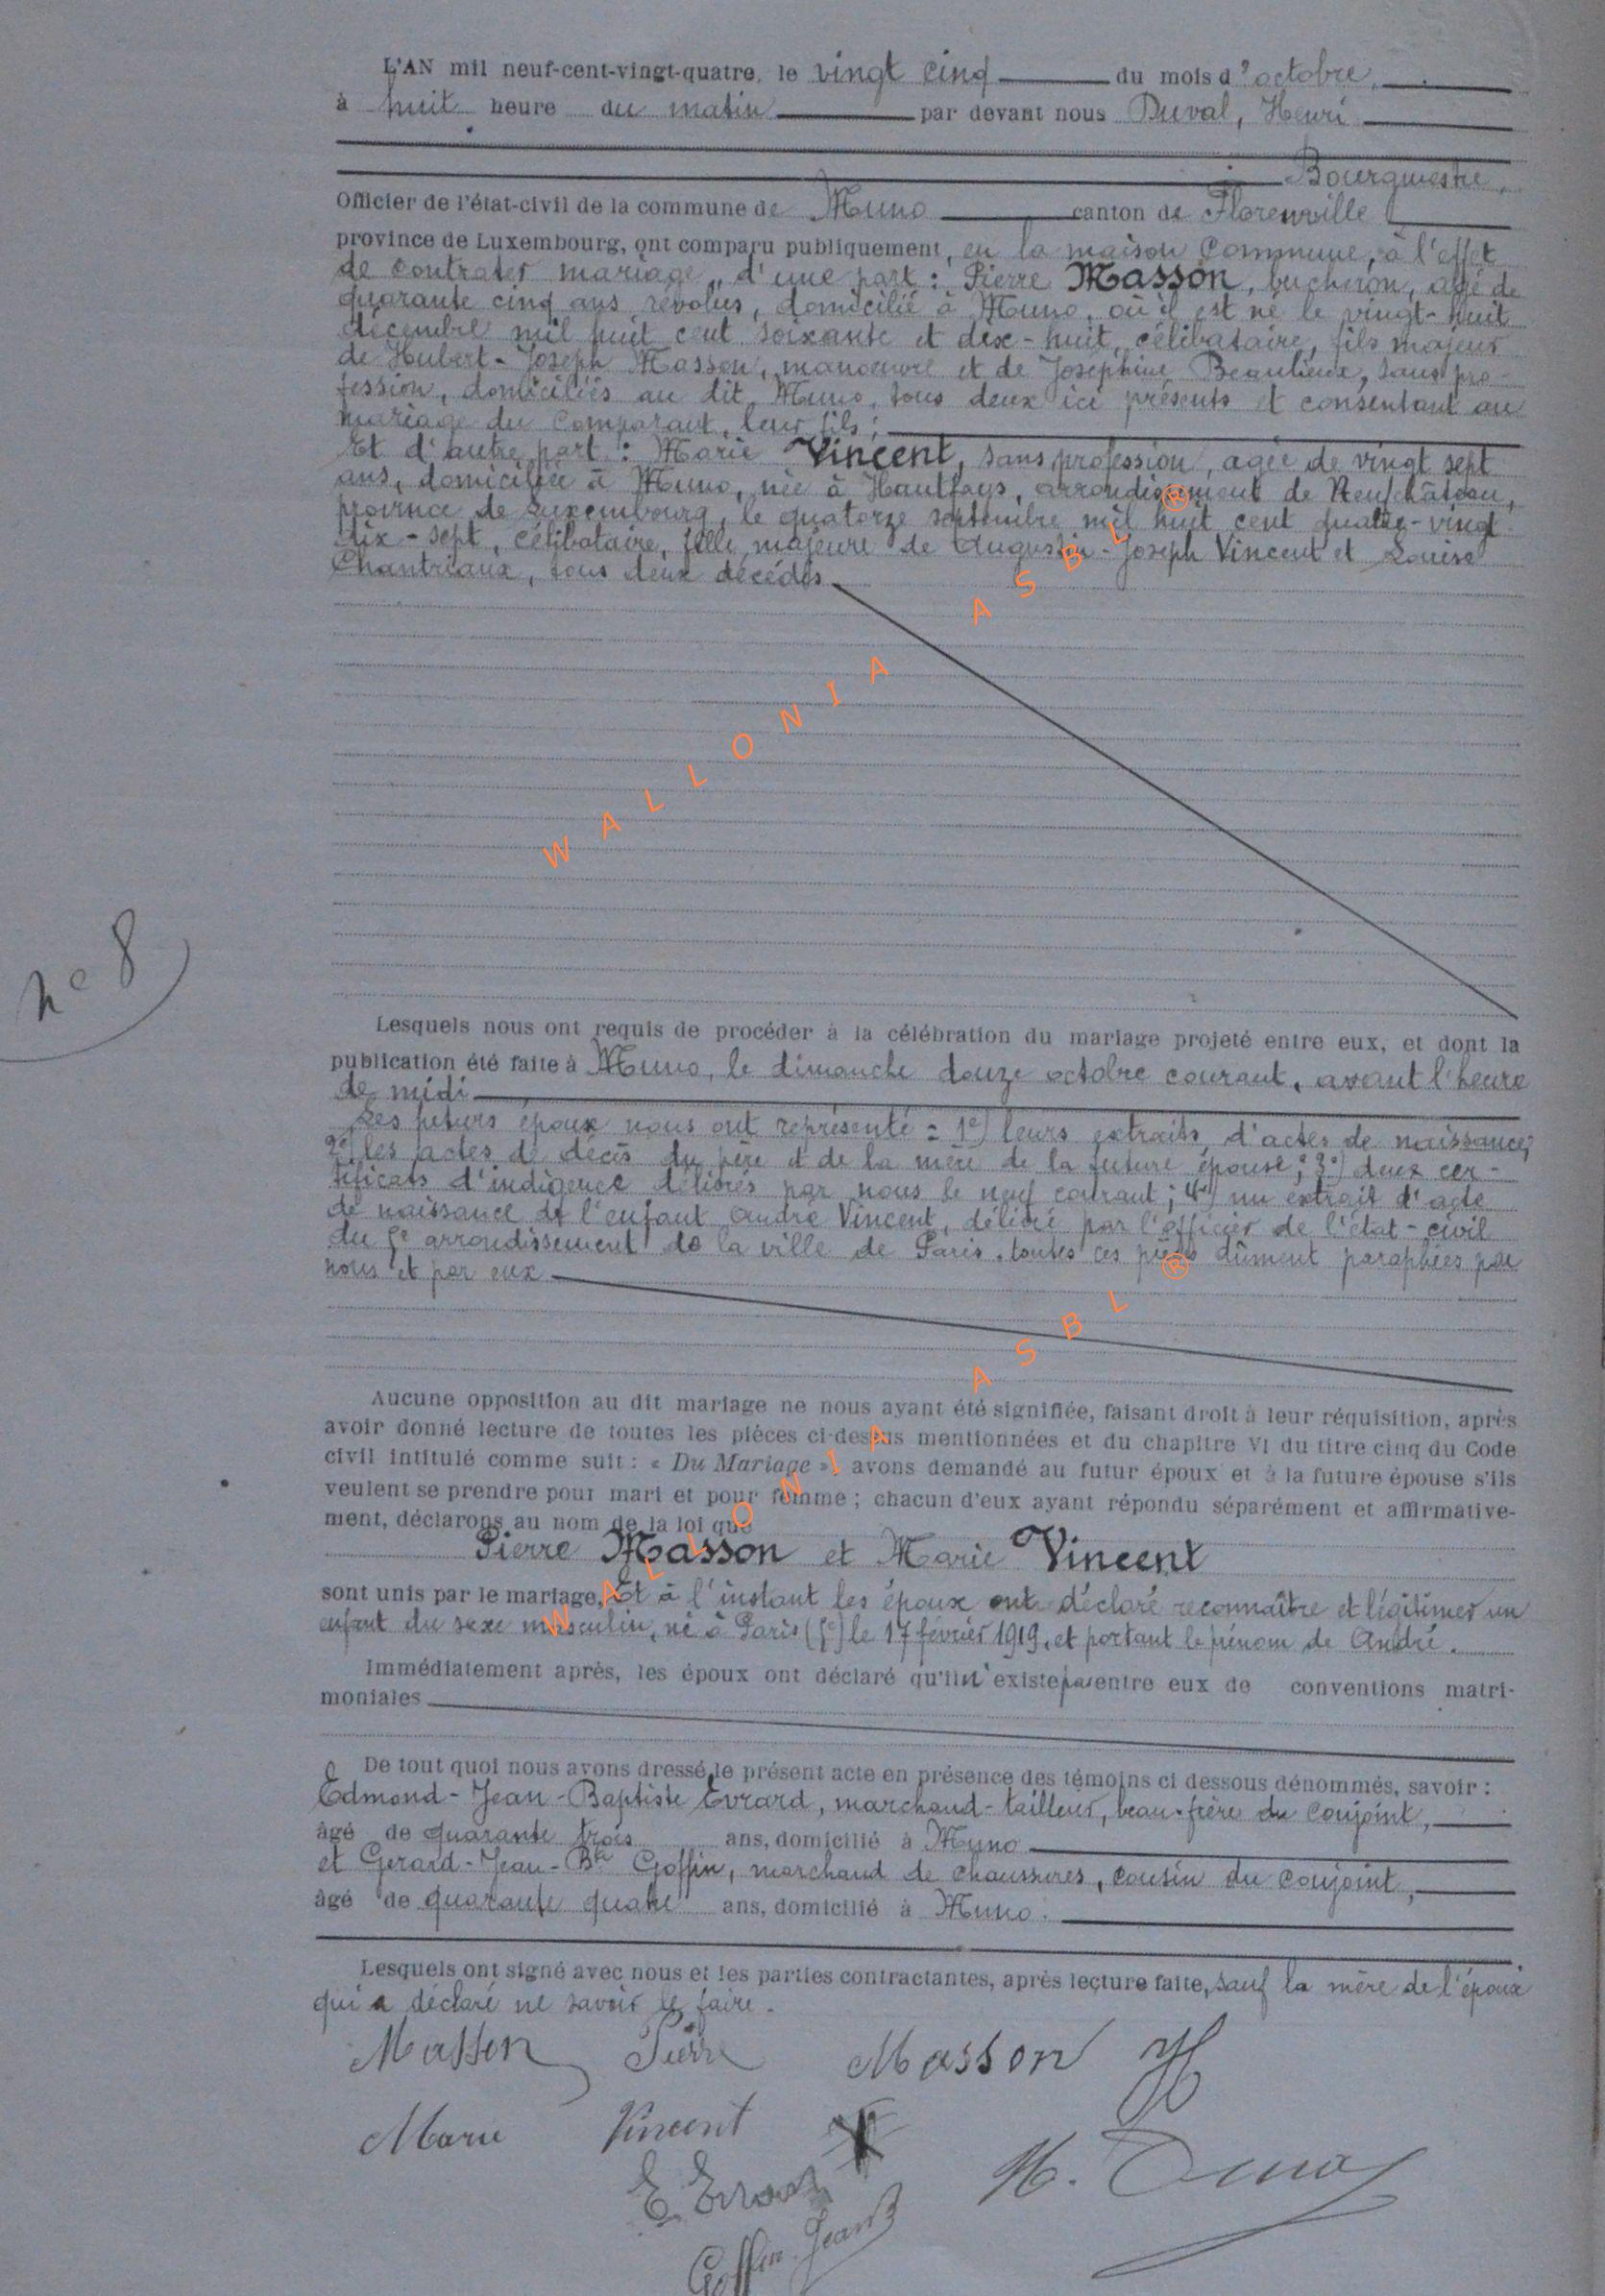 L'AN mil neuf-cent-vingt-quatre, le vingt cinq du mois d'octobre,
à huit heure du matin par devant nous Duval, Henri
Bourgmestre,
Officier de l'état-civil de la commune de Muno canton de Florenville
province de Luxembourg, ont comparu publiquement, en la maison Commune, à l'effet
de contracter mariage, d'une part : Pierre Masson, bucheron, agé de
quarante cinq ans révolus, domicilié à Muno, où il est né le vingt-huit
décembre mil huit cent soixante et dix-huit, célibataire, fils majeur
de Hubert-Joseph Masson, manoeuvre et de Joséphine Beaulieux, sans pro-
fession, domiciliés au dit Muno, tous deux ici présents et consentant au
mariage du Comparant, leur fils ;
Et d'autre part : Marie Vincent, sans profession, agée de vingt sept
ans, domiciliée à Muno, née à Hautfays, arrondissement de Neufchâteau,
province de Luxembourg, le quatorze septembre mil huit cent quatre-vingt
dix-sept, célibataire, fille majeure de Augustin-Joseph Vincent et Louise
Chantriaux, tous deux décédés
WALLONIA ASBL ®
n° 8
Lesquels nous ont requis de procéder à la célébration du mariage projeté entre eux, et dont la
publication été faite à Muno, le dimanche douze octobre courant, avant l'heure
de midi
Les futurs époux nous ont représenté : 1°) leurs extraits d'actes de naissance;
2°) les actes de décès du père et de la mère de la future épouse; 3°) deux cer-
tificats d'indigence délivrés par nous le neuf courant; 4°) un extrait d'acte
de naissance de l'enfant André Vincent, délivré par l'officier de l'état-civil
du 5e arrondissement de la ville de Paris. toutes ces pièces dûment paraphées par
nous et par eux
Aucune opposition au dit mariage ne nous ayant été signifiée, faisant droit à leur réquisition, après
avoir donné lecture de toutes les pièces ci-dessus mentionnées et du chapitre VI du titre cinq du Code
civil intitulé comme suit : « Du Mariage » avons demandé au futur époux et à la future épouse s'ils
veulent se prendre pour mari et pour femme ; chacun d'eux ayant répondu séparément et affirmative-
ment, déclarons au nom de la loi que
Pierre Masson et Marie Vincent
sont unis par le mariage, Et à l'instant les époux ont déclaré reconnaître et légitimer un
enfant du sexe masculin, né à Paris (5e) le 17 février 1919, et portant le prénom de André.
WALLONIA ASBL ®
Immédiatement après, les époux ont déclaré qu'il n'existe pas entre eux de conventions matri-
moniales
De tout quoi nous avons dressé le présent acte en présence des témoins ci dessous dénommés, savoir :
Edmond-Jean-Baptiste Evrard, marchand-tailleur, beau-frère du conjoint,
âgé de quarante trois ans, domicilié à Muno
et Gerard-Jean-Bte Goffin, marchand de chaussures, cousin du conjoint,
âgé de quarante quatre ans, domicilié à Muno.
Lesquels ont signé avec nous et les parties contractantes, après lecture faite, sauf la mère de l'époux
qui a déclaré ne savoir le faire.
Masson Pierre Masson H
Marie Vincent
E Evrard H. Duval
Goffin Jean B